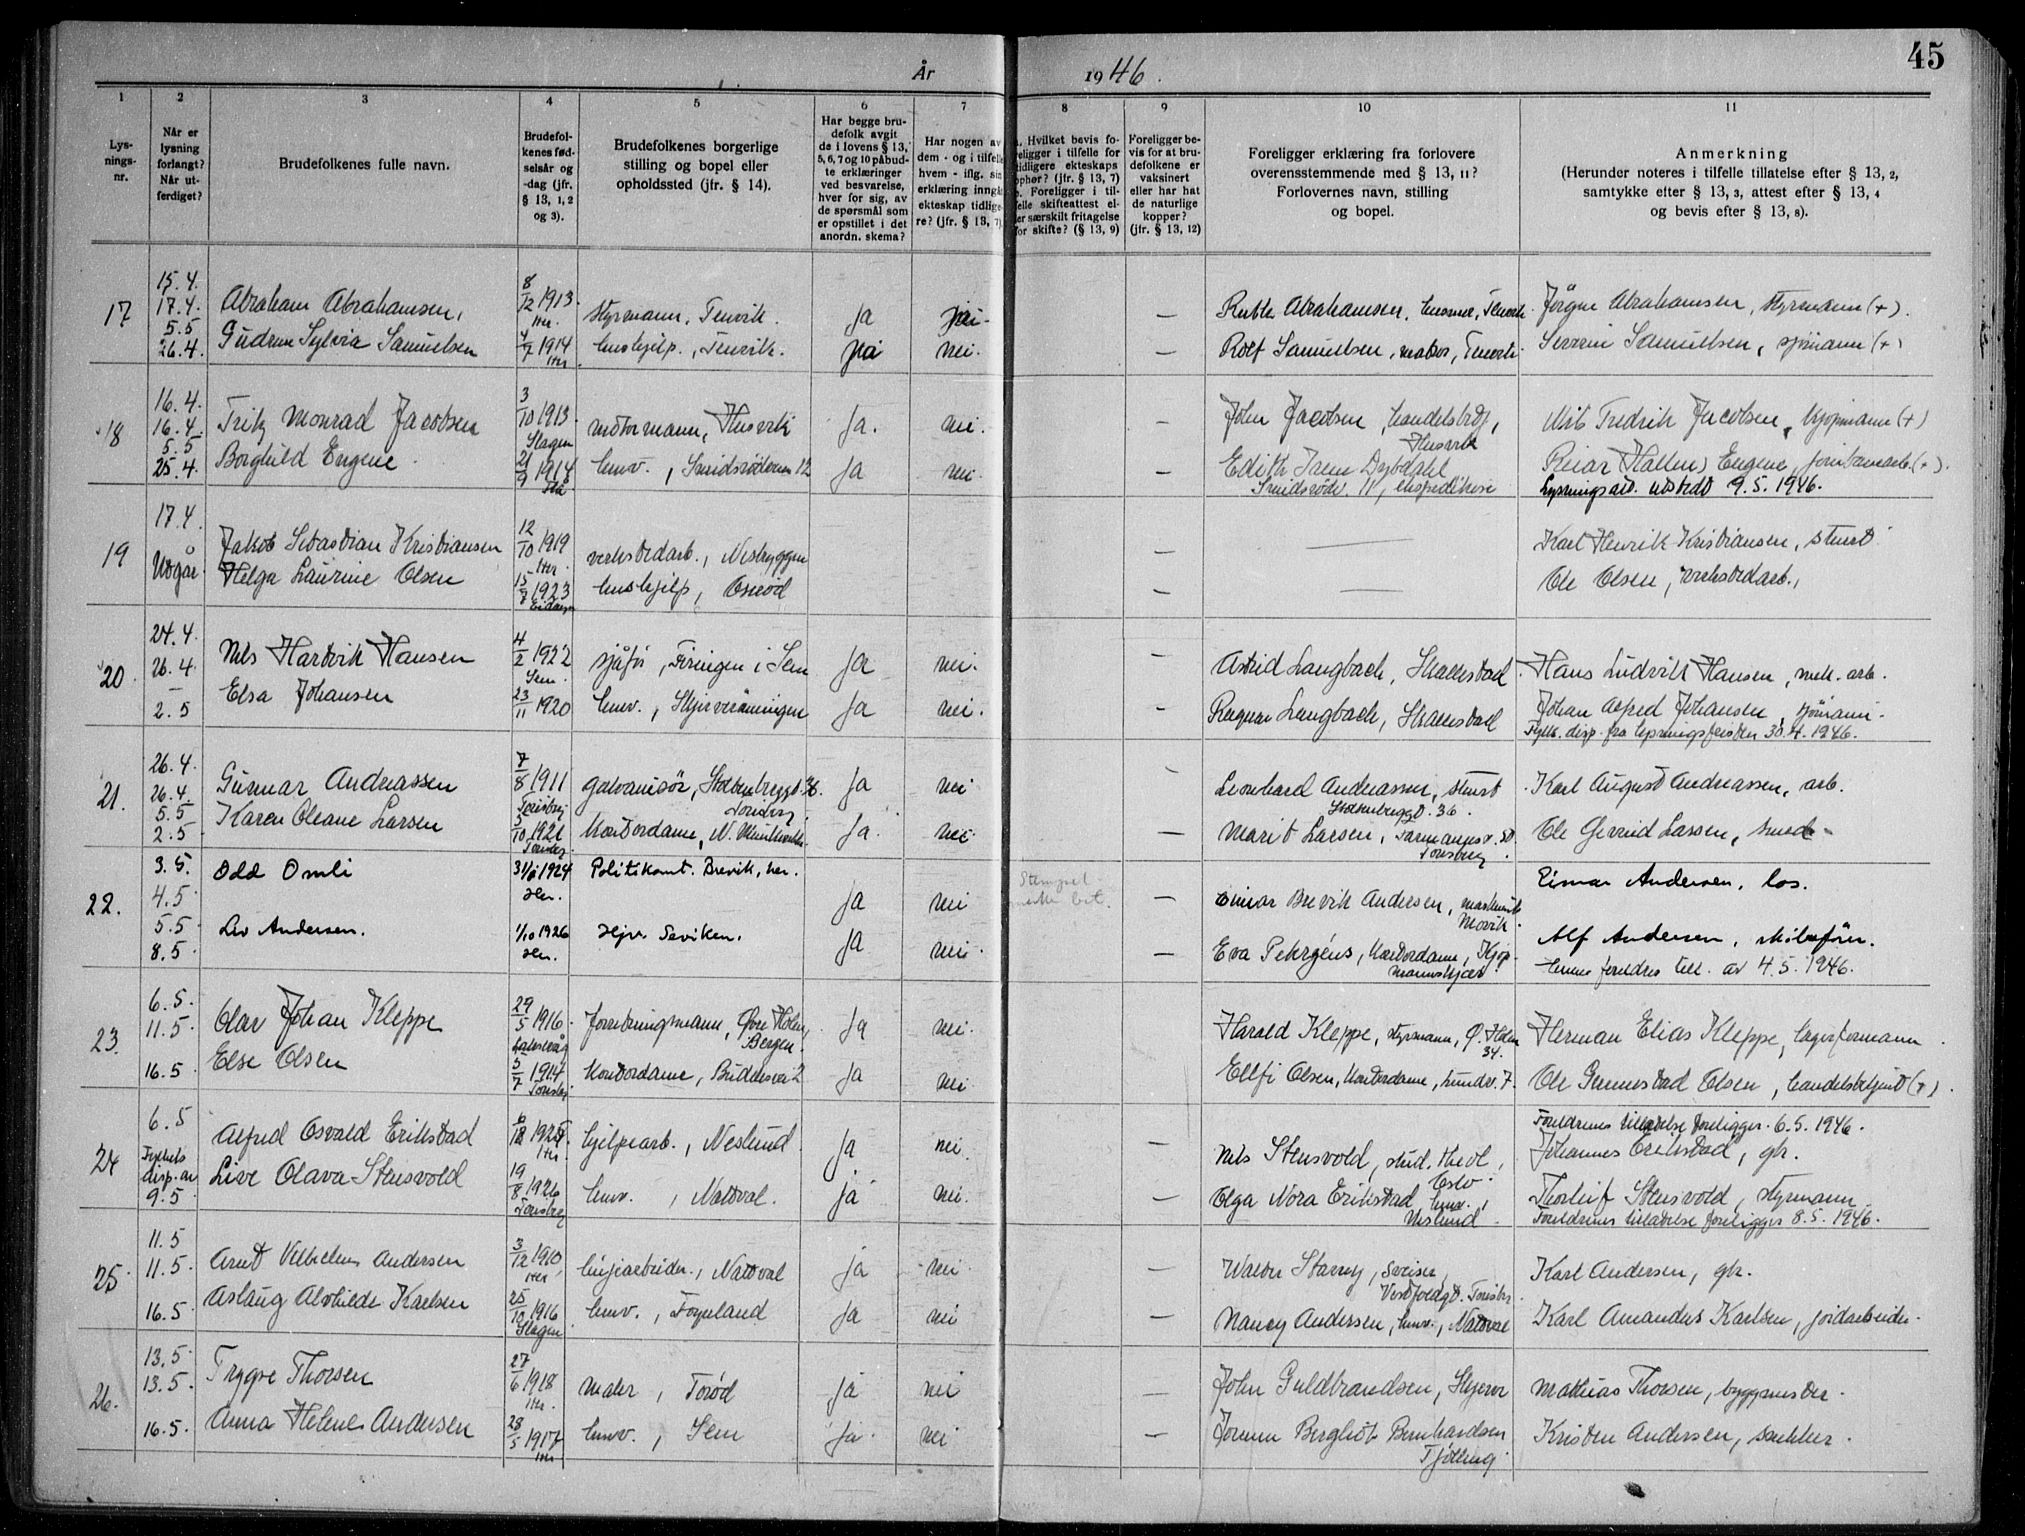 45
År 1946.
1 2 3 4 5 6 7 8 9 10 11
Lys-
nings-
nr.
Når er
lysning
forlangt?
Når ut-
ferdiget?
Brudefolkenes fulle navn.
Brudefol-
kenes fød-
selsår og
-dag (jfr.
§ 13, 1, 2
og 3).
Brudefolkenes borgerlige
stilling og bopel eller
opholdssted (jfr. § 14).
Har begge bru-
defolk avgit
de i lovens § 13,
5, 6, 7 og 10 påbud-
te erklæringer
ved besvarelse,
hver for sig, av
de spørsmål som
er opstillet i det
anordn. skema?
Har nogen av
dem - og i tilfelle
hvem - iflg. sin
erklæring inngått
ekteskap tidlige-
re? (jfr. § 13, 7)
Hvilket bevis fo-
religger i tilfelle for
tidligere ekteskaps
ophør? (jfr. § 13, 7)
Foreligger i til-
felle skifteattest el-
ler særskilt fritagelse
for skifte? (§ 13, 9)
Foreligger be-
vis for at bru-
defolkene er
vaksinert
eller har hat
de naturlige
kopper?
(jfr. § 13, 12)
Foreligger erklæring fra forlovere
overensstemmende med § 13, 11?
Forlovernes navn, stilling
og bopel.
Anmerkning
(Herunder noteres i tilfelle tillatelse efter § 13, 2,
samtykke efter § 13, 3, attest efter § 13, 4
og bevis efter § 13, 8).
17
15.4.
17.4.
5.5
26.4.
Abraham Abrahamsen, 8/12 1913 styrmann, Tenvik. Ja — Ruth Abrahamsen, husmor, Tenvik. Jørgen Abrahamsen, styrmann (+).
Gudrun Sylvia Samuelsen 4/7 1914 hushjelp, Tenvik. nei. — Rolf Samuelsen, matros, Tenvik. Severin Samuelsen, sjømann (+)
18
16.4.
16.4.
5.5
25.4.
Fritz Monrad Jacobsen 3/10 1913 Slagen motormann, Husvik Ja. nei. — John Jacobsen, handelsbetj, Husvik Nils Fredrik Jacobsen, kjøpmann (+)
Borghild Engene 21/9 1914 husv., Smidsrødveien 12 Ja nei. — Edith Irene Dybdahl Smidsrødv. 11, ekspeditrise Reiar Hallen Engene, jernbanearb. (+).
Lysningsatt. utstedt 9.5.1946.
19
17.4.
Utgår
Jakob Sebastian Kristiansen 12/10 1919 verkstedarb., Nesbryggen — Karl Henrik Kristiansen, stuert
Helga Laurine Olsen 15/7 1923 hushjelp, Oserød — Ole Olsen, verkstedarb.,
20
24.4.
26.4.
—
2.5
Nils Hartvik Hansen 4/2 1922 Sem. sjåfør, Feringen i Sem Ja nei. — Astrid Langbach, Skallestad Hans Ludvik Hansen, mek. arb.
Elsa Johansen 23/11 1920 husv., Skjerveråningen Ja nei. — Ragnar Langbach, Skallestad Johan Alfred Johansen, sjømann.
Fylk. disp. fra lysningsfristen 30.4.1946.
21.
26.4.
26.4.
5.5
2.5
Gunnar Andreassen 7/8 1911 Tønsberg galvanisør, Stoltenbergt. 36 Tønsberg Ja nei — Leonhard Andreassen, stuert Stoltenberggt. 36. Karl August Andreassen, arb.
Karen Oleane Larsen 3/10 1921 Tønsberg Kontordame, N. Ja. nei — Marit Larsen, Tønsberg Ole Gerund Larsen, smed
22.
3.5.
4.5
5.5
8.5
Odd Omli 31/8 1924 Politikonst. Brevik, her. Ja nei Stempel — Einar Brevik Andersen, maskinist Einar Andersen, los.
Liv Andersen. 1/10 1926 Hjv. Seviken. Ja nei. — Eva Pehrzéns, Kontordame, Kjøpmannskjær Alf Andersen, skibsfører.
hennes foreldres till. av 4.5.1946.
23.
6.5.
11.5.
16.5
Olav Johan Kleppe 29/5 1916. forretningsmann, Øvre Holen, Bergen. Ja nei. Harald Kleppe, styrmann, Ø. Holen 34. Herman Elias Kleppe, lagerformann
Else Olsen 5/7 1914 Tønsberg Kontordame, Ja nei Ellfi Olsen, Kontordame, Ole Gunnestad Olsen, handelsbetjent (+).
24
6.5
Fylkets
disp. av
9.5
Foreldrenes tillatelse foreligger. 6.5.1946.
Alfred Osvald Erikstad hjelpearb., Neslund Ja nei. — Nils Stensvold, stud. theol, Oslo. Johannes Erikstad, gbr.
Live Olava Stensvold 19/8 1926 Tønsberg husv., Natval. ja nei. — Olga Nora Erikstad husv., Neslund Thorleif Stensvold, styrmann
Foreldrenes tillatelse foreligger 8.5.1946.
25
11.5
11.5.
16.5.
Arnt Vilhelm Andersen 3/12 1910 linjearbeider., Natval ja nei. — Walter Starrey, sveiser, Vestfoldgt. Tønsberg Karl Andersen, gbr.
Aslaug Alvhilde Karlsen 25/12 1916 Slagen husv., Føynland Ja nei — Nancy Andersen, husv., Natval Karl Amandus Karlsen, jordarbeider
26.
13.5
13.5.
16.5.
Trygve Thorsen 27/6 1918 maler, Torød ja nei — John Guldbrandsen, Skjerve Mathias Thorsen, byggmester
Anna Helene Andersen 28/5 1917 husv., Sem Ja. nei — Jorunn Bergliot Bernhardsen Tjølling Kristen Andersen, snekker.